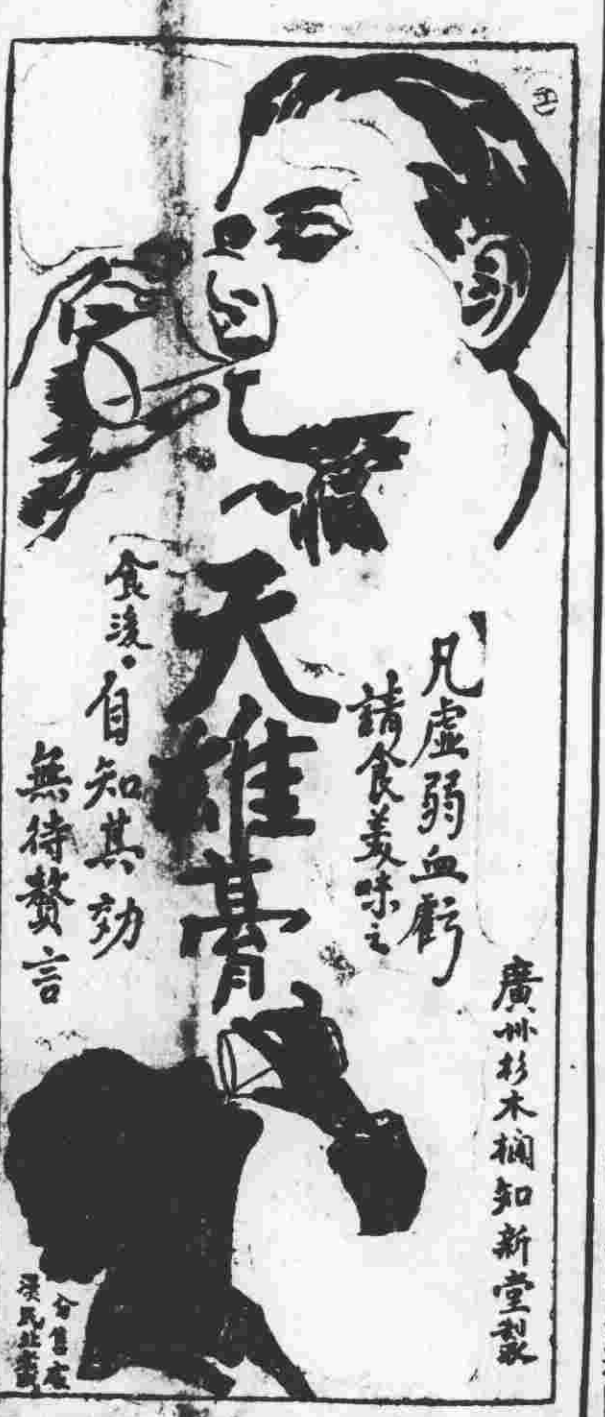 廣州杉木欄知新堂製
凡虛弱血虧
請食美味之
天雄膏
食後·自知其効
無待贅言
分售處